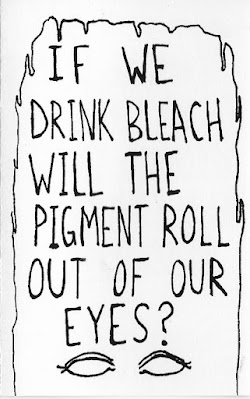 IF WE
DRINK BLEACH
WILL THE
PIGMENT ROLL
OUT OF OUR
EYES?